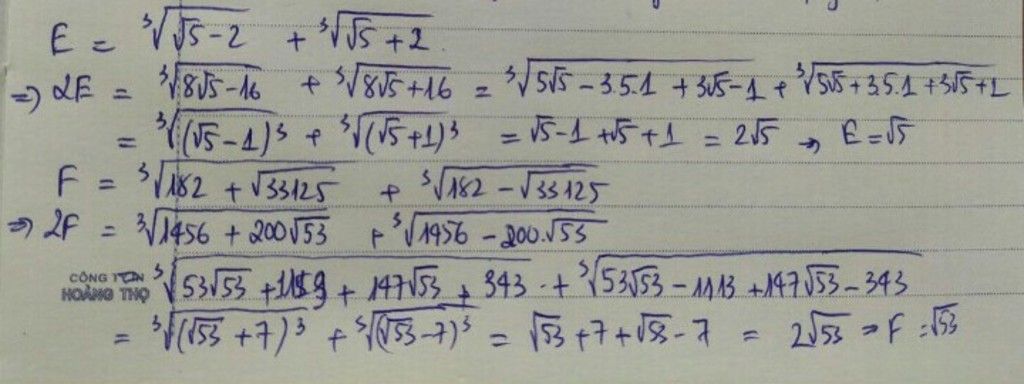 E = ∛(√5 - 2) + ∛(√5 + 2)
=> 2E = ∛(8√5 - 16) + ∛(8√5 + 16) = ∛(5√5 - 3.5.1 + 3√5 - 1) + ∛(5√5 + 3.5.1 + 3√5 + 1)
= ∛(√5 - 1)³ + ∛(√5 + 1)³ = √5 - 1 + √5 + 1 = 2√5 => E = √5
F = ∛(182 + √33125) + ∛(182 - √33125)
=> 2F = ∛(1456 + 200√53) + ∛(1456 - 200.√53)
CÔNG TOÀN
HOÀNG THỌ
∛(53√53 + + 147√53 + 343) + ∛(53√53 - 1113 + 147√53 - 343)
= ∛(√53 + 7)³ + ∛(√53 - 7)³ = √53 + 7 + √53 - 7 = 2√53 => F = √53